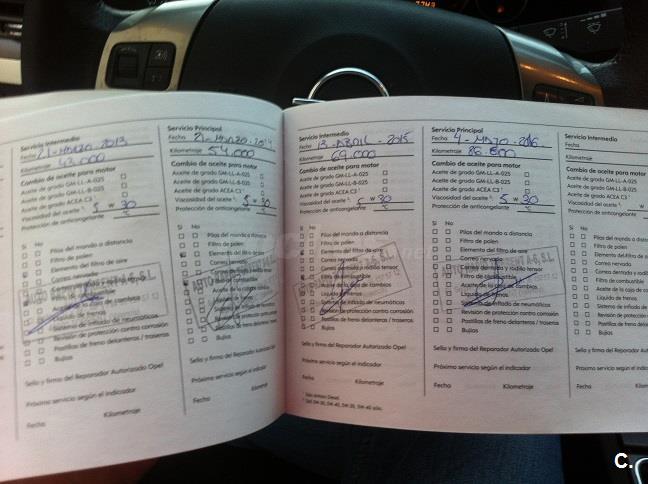 Servicio Intermedio
Fecha 21-MARZO 2013
Kilometraje 43.000
Cambio de aceite para motor
Aceite de grado GM-LL-A-025
Aceite de grado GM-LL-B-025
Aceite de grado ACEA C3
Viscosidad del aceite 5 W 30
Protección de anticongelante °C
Sí No
Pilas del mando a distancia
Filtro de polen
Elemento del filtro de aire
Correa nervada
de cambios
Líquido de frenos
Sistema de inflado de neumáticos
Revisión de protección contra corrosión
Pastillas de freno delanteros / traseros
Bujías
Sello y firma del Reparador Autorizado Opel
Próximo servicio según el indicador
Fecha Kilometraje
Servicio Principal
Fecha 21-MARZO-2014
Kilometraje 54.000
Cambio de aceite para motor
Aceite de grado GM-LL-A-025
Aceite de grado GM-LL-B-025
Aceite de grado ACEA C3
Viscosidad del aceite 5 W 30
Protección de anticongelante °C
Sí No
Pilas del mando a distancia
Filtro de polen
Elemento del filtro de aire
Correa nervada
Sistema de inflado de neumáticos
Revisión de protección contra corrosión
Pastillas de freno delanteros / traseros
Bujías
Sello y firma del Reparador Autorizado Opel
Próximo servicio según el indicador
Fecha Kilometraje
Servicio Intermedio
Fecha 13-ABRIL-2015
Kilometraje 69.000
Cambio de aceite para motor
Aceite de grado GM-LL-A-025
Aceite de grado GM-LL-B-025
Aceite de grado ACEA C3
Viscosidad del aceite 5 W 30
Protección de anticongelante °C
Sí No
Pilas del mando a distancia
Filtro de polen
Elemento del filtro de aire
Correa nervada
Correa dentada y rodillo tensor
Filtro de combustible
Aceite de la caja de cambios
Líquido de frenos
Sistema de inflado de neumáticos
Revisión de protección contra corrosión
Pastillas de freno delanteros / traseros
Bujías
Sello y firma del Reparador Autorizado Opel
Próximo servicio según el indicador
Fecha Kilometraje
Servicio Principal
Fecha 4-MARZO-2016
Kilometraje 86.500
Cambio de aceite para motor
Aceite de grado GM-LL-A-025
Aceite de grado GM-LL-B-025
Aceite de grado ACEA C3
Viscosidad del aceite 5 W 30
Protección de anticongelante °C
Sí No
Pilas del mando a distancia
Filtro de polen
Elemento del filtro de aire
Correa nervada
Correa dentada y rodillo tensor
Filtro de combustible
Aceite de la caja de cambios
Líquido de frenos
Sistema de inflado de neumáticos
Revisión de protección contra corrosión
Pastillas de freno delanteros / traseros
Bujías
Sello y firma del Reparador Autorizado Opel
Próximo servicio según el indicador
Fecha Kilometraje
Servicio Intermedio
Fecha
Kilometraje
Cambio de aceite para motor
Aceite de grado GM-LL-A-025
Aceite de grado GM-LL-B-025
Aceite de grado ACEA C3
Viscosidad del aceite W
Protección de anticongelante
Sí No
Pilas del mando a distancia
Filtro de polen
Elemento del filtro de aire
Correa nervada
Correa dentada y rodillo
Filtro de combustible
Aceite de la caja de cambi
Líquido de frenos
Sistema de inflado de ne
Revisión de protección
Pastillas de freno dela
Bujías
Sello y firma del Reparador Auto
Próximo servicio según el indi
Fecha Kilo
C.